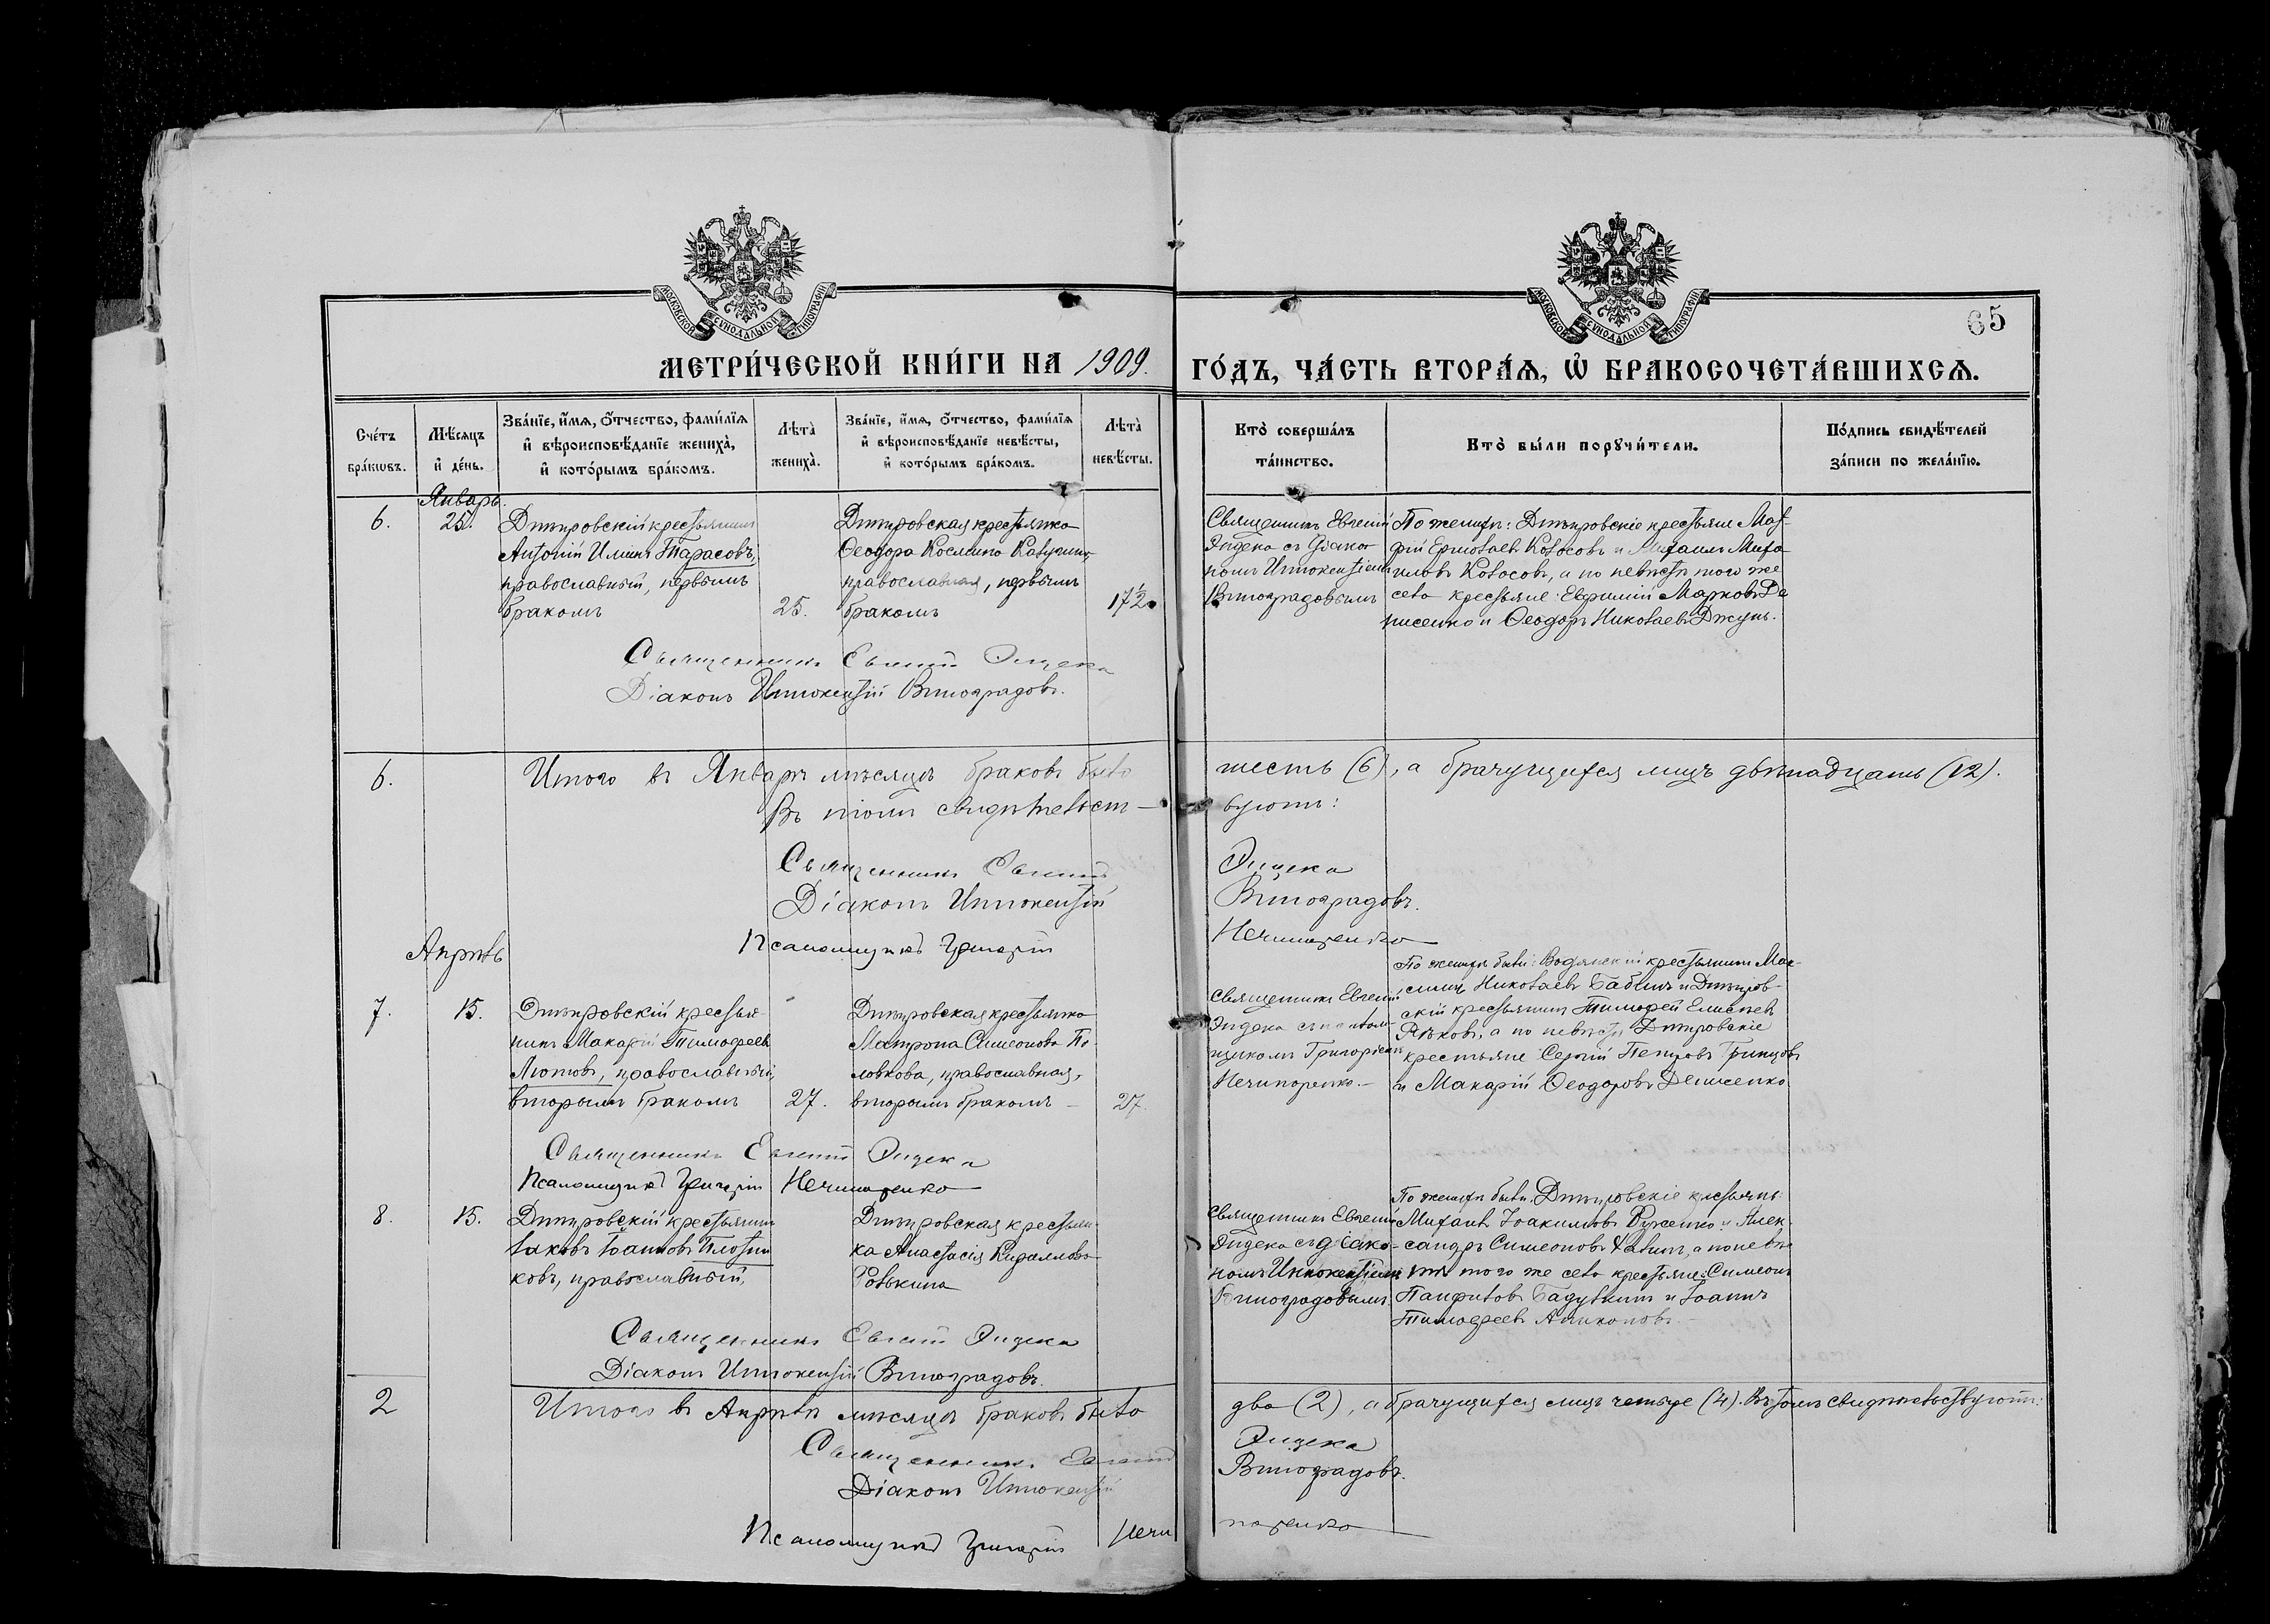 МОСКОВСКОЙ СУНОДАЛЬНОЙ ТИПОГРАФІИ
МОСКОВСКОЙ СУНОДАЛЬНОЙ ТИПОГРАФІИ
65
МЕТРИ́ЧЕСКОЙ КНИ́ГИ НА 1909. ГО́ДЪ, ЧА́СТЬ ВТОРА́Ѧ, Ѡ҆ БРАКОСОЧЕТА́ВШИХСѦ.
Сче́тъ
бра́кѡвъ.
Мѣ́сѧцъ
и҆ де́нь.
Зва́нїе, и҆́мѧ, ѻ҆́тчество, фами́лїѧ
и҆ вѣроисповѣ́данїе жениха̀,
и҆ кото́рымъ бра́комъ.
Лѣта̀
жениха̀.
Зва́нїе, и҆́мѧ, ѻ҆́тчество, фами́лїѧ
и҆ вѣроисповѣ́данїе невѣ́сты,
и҆ кото́рымъ бра́комъ.
Лѣта̀
невѣ́сты.
Кто̀ соверша́лъ
та́инство.
Кто̀ бы́ли порꙋчи́тели.
По́дпись свидѣ́телей
за́писи по жела́нїю.
Январь.
6.
25.
Днѣпровскій крестьянинъ
Антоній Иліинъ Тарасовъ,
православный, первымъ
бракомъ
25.
Днѣпровская крестьянка
Ѳеодора Космина
православная, первымъ
бракомъ
17½
Священникъ Евгеній
Эпдека съ діако-
номъ Иннокентіемъ
Виноградовымъ
По женихѣ: Днѣпровскіе крестьяне Мат-
фій Ермолаевъ Колосовъ и Михаилъ Миха-
иловъ Колосовъ, а по невѣстѣ того же
села крестьяне: Евфимій Марковъ Де-
нисенко и Ѳеодоръ Николаевъ Джунь.
Священникъ Евгеній Эпдека
Діаконъ Иннокентій Виноградовъ.
6.
Итого въ Январѣ мѣсяцѣ браковъ было шесть (6), а брачущихся лицъ двѣнадцать (12).
Въ томъ свидѣтельст- вуютъ:
Священникъ Евгеній Эпдека
Діаконъ Иннокентій Виноградовъ.
Псаломщикъ Григорій Нечипоренко
Апрѣль
7.
15.
Днѣпровскій крестья-
нинъ Макарій Тимофеевъ
Лютовъ, православный,
вторымъ бракомъ
27.
Днѣпровская крестьянка
Матрона Симеонова По-
ловкова, православная,
вторымъ бракомъ
27.
Священникъ Евгеній
Эпдека съ псалом-
щикомъ Григоріемъ
Нечипоренко.
По женихѣ были: Водянскій крестьянинъ Мак-
симъ Николаевъ Бабичъ и Днѣпров-
скій крестьянинъ Тимофей Елисѣевъ
а по невѣстѣ Днѣпровскіе
крестьяне Сергій Петровъ Гринцовъ
и Макарій Ѳеодоровъ Денисенко
Священникъ Евгеній Эпдека
Псаломщикъ Григорій Нечипоренко
8.
15.
Днѣпровскій крестьянинъ
Іаковъ Іоанновъ Плотни-
ковъ, православный,
Днѣпровская крестьян-
ка Анастасія Кириллова
Священникъ Евгеній
Эпдека съ діако-
номъ Иннокентіемъ
Виноградовымъ.
По женихѣ были: Днѣпровскіе крестьяне:
Михаилъ Іоакимовъ Руженко и Алек-
сандръ Симеоновъ а по невѣ-
стѣ того же села крестьяне: Симеонъ
Панфиловъ Бадулинъ и Іоаннъ
Тимофеевъ
Священникъ Евгеній Эпдека
Діаконъ Иннокентій Виноградовъ.
2
Итого въ Апрѣлѣ мѣсяцѣ браковъ было два (2), а брачущихся лицъ четыре (4). Въ томъ свидѣтельствуютъ:
Священникъ Евгеній Эпдека
Діаконъ Иннокентій Виноградовъ.
Псаломщикъ Григорій Нечи поренко